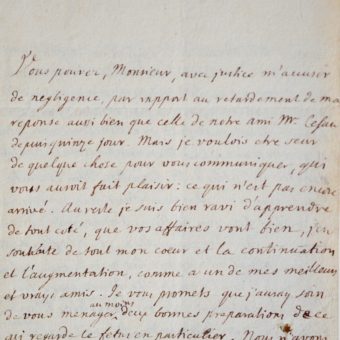 Vous pouvez, Monsieur, avec justice m'accuser
de negligence, par rapport au retardement de ma
reponse aussi bien que celle de notre ami Mr.
depuis quinze jour. Mais je voulois etre seur
de quelque chose pour vous communiquer, qui
vous auroit fait plaisir: ce qui n'est pas encore
arrivé. Au reste je suis bien ravi d'apprendre
de tout coté, que vos affaires vont bien, j'en
souhaite de tout mon coeur et la continuation
et l'augmentation, comme a un de mes meilleurs
et vrays amis. Je vous promets que j'auray soin
au moins
de vous menager deux bonnes preparations de ce
qui regarde le fetus en particulier. Nous n'avons